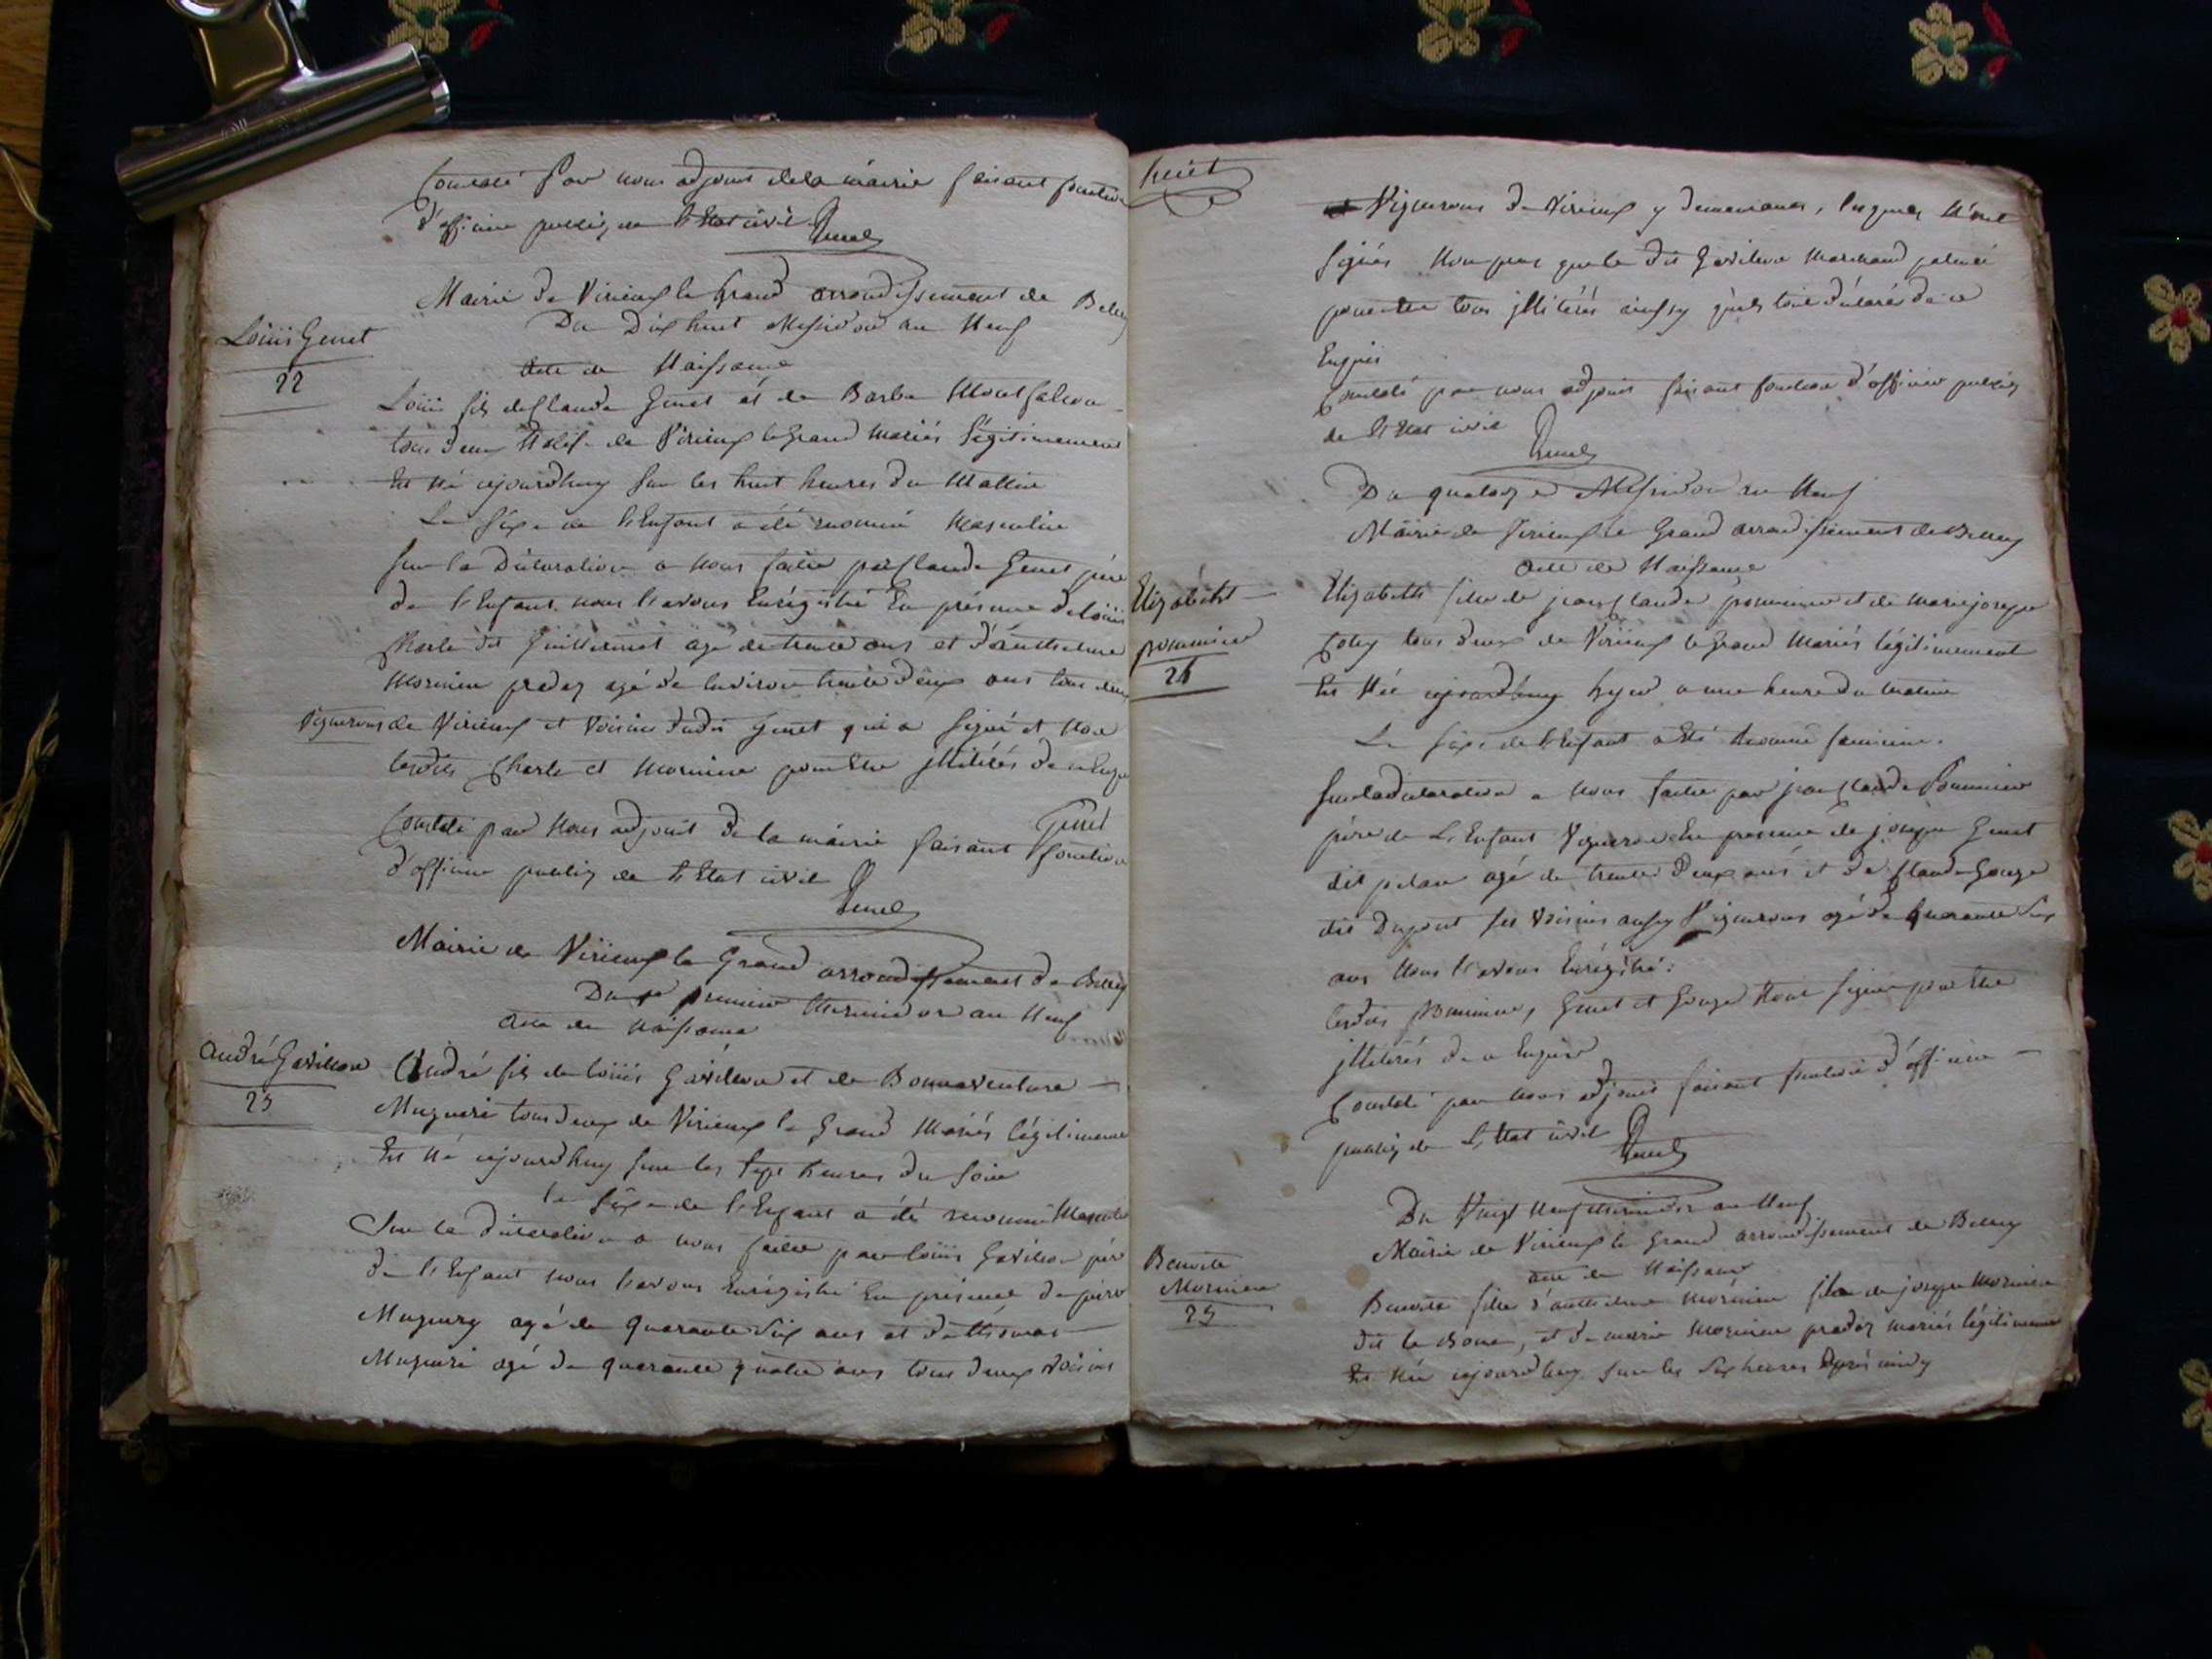 Constaté Par nous adjoint dela mairie faisant fonction
d'officier publiq de l'Etat civil
Mairie de Virieux le Grand arrondissement de Belley
Du Dix huit Messidor an Neuf
Louis Genet
22
Acte de Naissance
Louis fils de Claude Genet et de Barbe Montfalcon
tous deux de Virieux le Grand Mariés légitimement
Est Né aujourdhuy sur les huit heures du Mattin
Le sexe de l'Enfant a été reconnu Masculin
sur la Déclaration a nous faite par Claude Genet père
de l'Enfant nous l'avons Enrégistré En présence de Louis
Charle dit Guillermet agé de trente ans et d'anthelme
Mornieu pradez agé de Environ trente deux ans tous deux
Vignerons de Virieux et Voisins dudit Genet qui a signé et Non
lesdits Charle et Mornieu pour Etre jllitérés de ce Enquis
Genet
Constaté par Nous adjoint de la mairie faisant fonction
d'officier publiq de l'Etat civil
Mairie de Virieux le Grand arrondissement de Belley
Du premier thermidor an Neuf
Acte de Naissance
André Gavillon
23
André fils de Louis Gavillon et de Bonnaventure
Mugueri tous deux de Virieux le Grand Mariés légitimement
Est Né aujourdhuy sur les sept heures du soir
le sexe de l'Enfant a été reconnu Masculin
Sur la déclaration a nous faitte par Louis Gavillon père
de l'Enfant nous l'avons Enrégistré En présence de pierre
Muguery agé de quarante six ans et de thomas
Mugueri agé de quarante quatre ans tous deux voisins
et Vignerons de Virieux y demeurants, lesquels N'ont
signés Non plus que le dit Gavillon
pour Etre tous jllitérés aussy qu'ils l'ont déclaré de ce
Enquis
Constaté par nous adjoint faisant fonction d'officier publiq
de l'Etat civil
Du quatorze Messidor an Neuf
Mairie de Virieux le Grand arrondissement de Belley
Acte de Naissance
Elizabeht
pommier
24
Elizabeth fille de jean Claude pommier et de Marie joseph
Coley tous deux de Virieux le Grand Mariés légitimement
Est Née aujourdhuy hyer a une heure du matin
Le sexe de l'Enfant a Eté reconnu feminin.
sur la déclaration a nous faitte par jean Claude Pommier
père de L'Enfant Vigneron En presence de joseph Genet
dit agé de trente deux ans et de Claude Gouge
dit Dupont ses Voisins aussy Vignerons agé de quarante six
ans Nous l'avons Enrégistré:
lesdits Pommier, Genet et Gouge N'ont signés pour Etre
jllitérés de ce Enquis
Constaté par nous adjoint faisant fonction d'officier
publiq de L'Etat civil
Du Vingt Neuf thermidor an Neuf
Mairie de Virieux le Grand arrondissement de Belley
acte de Naissance
Benoite
Mornieu
25
Benoite fille d'anthelme Mornieu fils de joseph Mornieu
dit le et de marie Mornieu pradez mariés légitimement
Est Née aujourdhuy sur les six heures après midy